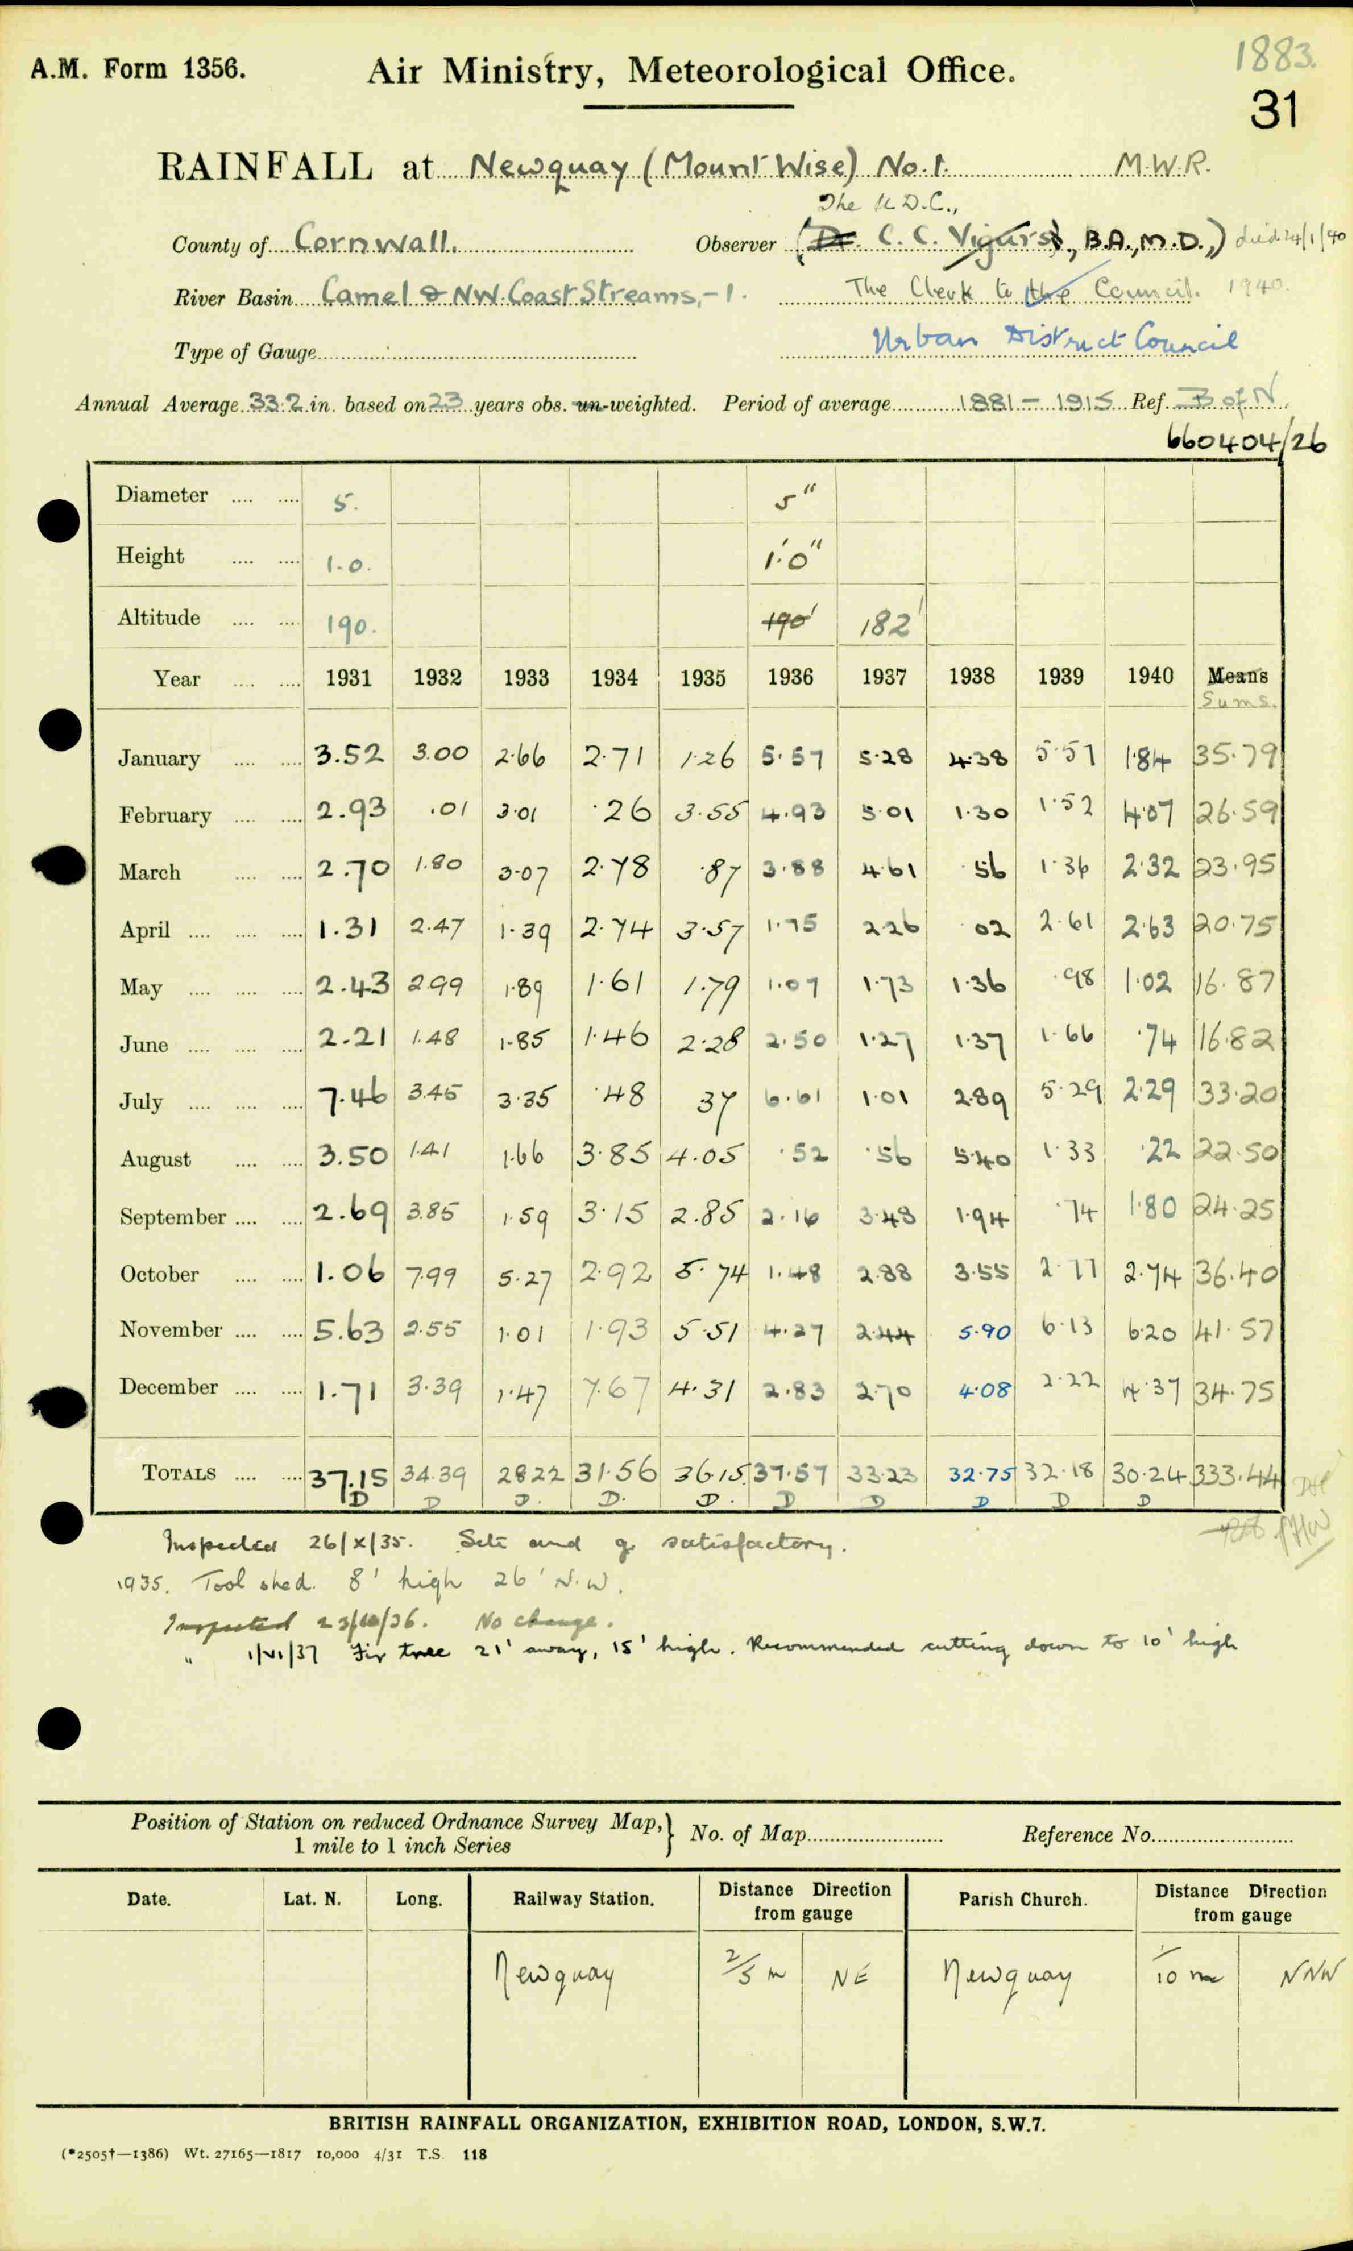 1883.
A.M. Form 1356. Air Ministry, Meteorological Office.
31
RAINFALL at Newquay (Mount Wise) No. 1. M.W.R.
The U.D.C.,
County of Cornwall. Observer (Dr. C. C. Vigurs, B.A., M.D.,) died 24/1/40
River Basin Camel & NW. Coast Streams,-1. The Clerk to the Council. 1940.
Type of Gauge Urban District Council
Annual Average 33.2 in. based on 23 years obs. un-weighted. Period of average 1881 - 1915 Ref. B of N.
660404/26
Diameter 5. 5"
Height 1.0. 1'.0"
Altitude 190. 190' 182'
Year 1931 1932 1933 1934 1935 1936 1937 1938 1939 1940 Means
Sums.
January 3.52 3.00 2.66 2.71 1.26 5.57 5.28 4.38 5.57 1.84 35.79
February 2.93 .01 3.01 .26 3.55 4.93 5.01 1.30 1.52 4.07 26.59
March 2.70 1.80 3.07 2.78 .87 3.88 4.61 .56 1.36 2.32 23.95
April 1.31 2.47 1.39 2.74 3.57 1.75 2.26 .02 2.61 2.63 20.75
May 2.43 2.99 1.89 1.61 1.79 1.07 1.73 1.36 .98 1.02 16.87
June 2.21 1.48 1.85 1.46 2.28 2.50 1.27 1.37 1.66 .74 16.82
July 7.46 3.45 3.35 .48 37 6.61 1.01 2.89 5.29 2.29 33.20
August 3.50 1.41 1.66 3.85 4.05 .52 .56 5.40 1.33 .22 22.50
September 2.69 3.85 1.59 3.15 2.85 2.16 3.48 1.94 .74 1.80 24.25
October 1.06 7.99 5.27 2.92 5.74 1.48 2.88 3.55 2.77 2.74 36.40
November 5.63 2.55 1.01 1.93 5.51 4.27 2.44 5.90 6.13 6.20 41.57
December 1.71 3.39 1.47 7.67 4.31 2.83 2.70 4.08 2.22 4.37 34.75
TOTALS 37.15 34.39 28.22 31.56 36.15 37.57 33.23 32.75 32.18 30.24 333.44
D D D. D. D. D D D D D
Inspected 26/X/35. Site and g. satisfactory.
1935. Tool shed. 8' high 26' N.W.
Inspected 23/10/36. No change.
" 1/VI/37 Fir tree 21' away, 15' high. Recommended cutting down to 10' high
Position of Station on reduced Ordnance Survey Map, 1 mile to 1 inch Series No. of Map Reference No.
Date. Lat. N. Long. Railway Station. Distance Direction from gauge Parish Church. Distance Direction from gauge
Newquay 2/5 m NE Newquay 1/10 m NNW
BRITISH RAINFALL ORGANIZATION, EXHIBITION ROAD, LONDON, S.W.7.
(*2505†—1386) Wt. 27165—1817 10,000 4/31 T.S. 118